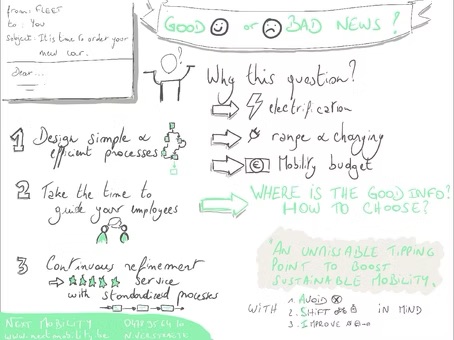 from: FLEET
to: You
Subject: It is time to order your
new car.
Dear...
GOOD or BAD NEWS?
?
Why this question?
electrification
range & charging
€ Mobility budget
1 Design simple &
efficient processes
2 Take the time to
guide your employees
3 Continuous refinement
service
with standardized processes
WHERE IS THE GOOD INFO?
HOW TO CHOOSE?
"AN UNMISSABLE TIPPING
POINT TO BOOST
SUSTAINABLE MOBILITY.
WITH 1. AVOID
2. SHIFT IN MIND
3. IMPROVE
NEXT MOBILITY